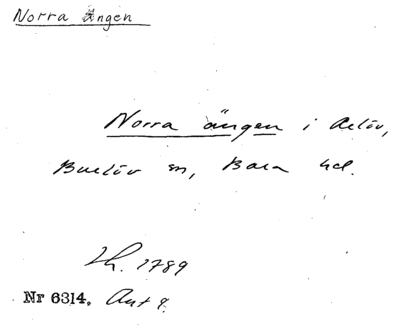 Norra Ängen
Norra ängen i Arlöv,
Burlöv sn, Bara hd.
Lh. 1789
Nr 6314. Ant 9.